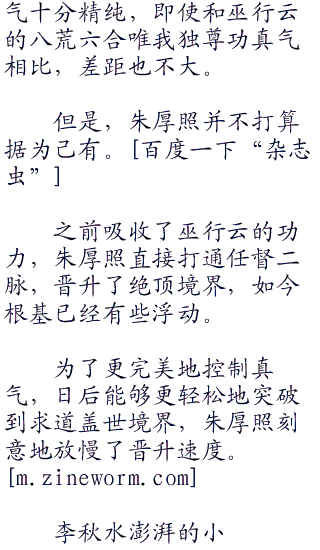 气十分精纯，即使和巫行云
的八荒六合唯我独尊功真气
相比，差距也不大。
但是，朱厚照并不打算
据为己有。[百度一下“杂志
虫”]
之前吸收了巫行云的功
力，朱厚照直接打通任督二
脉，晋升了绝顶境界，如今
根基已经有些浮动。
为了更完美地控制真
气，日后能够更轻松地突破
到求道盖世境界，朱厚照刻
意地放慢了晋升速度。
[m.zineworm.com]
李秋水澎湃的小